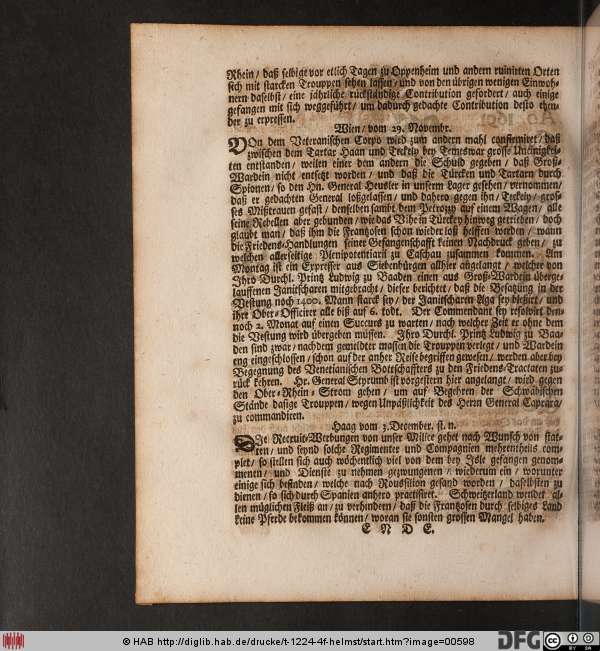 Rhein / daß selbige vor etlich Tagen zu Oppenheim und andern ruinirten Orten
sich mit starcken Trouppen sehen lassen / und von den übrigen wenigen Einwoh-
nern daselbst / eine jährliche rückständige Contribution gefordert / auch einige
gefangen mit sich weggeführt / um dadurch gedachte Contribution desto ehen-
der zu erpressen.
Wien / vom 29. Novembr.
VOn dem Veteranischen Corpo wird zum andern mahl confirmiret / daß
zwischen dem Tartar Haan und Teckely bey Temeswar grosse Uneinigkei-
ten entstanden / weilen einer dem andern die Schuld gegeben / daß Groß-
Wardein nicht entsetzt worden / und daß die Türcken und Tartarn durch
Spionen / so den Hn. General Heusler in unserm Lager gesehen / vernommen /
daß er gedachten General loßgelassen / und dahero gegen ihn / Teckely / gros-
ses Mißtrauen gefast / denselben sambt dem Petrozzy auf einem Wagen / alle
seine Rebellen aber gebunden / wie das Vihe in Türckey hinweg getrieben / doch
glaubt man / daß ihm die Frantzosen schon wieder loß helffen werden / wann
die Friedens-Handlungen seiner Gefangenschafft keinen Nachdruck geben / zu
welchen allerseitige Plenipotentiarii zu Caschau zusammen kommen. Am
Montag ist ein Expresser aus Siebenbürgen allhier angelangt / welcher von
Ihro Durchl. Printz Ludwig zu Baaden einen aus Groß-Wardein überge-
lauffenen Janitscharen mitgebracht / dieser berichtet / daß die Besatzung in der
Vestung noch 1400. Mann starck sey / der Janitscharen Aga sey blessirt / und
ihre Ober-Officirer alle biß auf 6. todt. Der Commendant sey resolvirt den-
noch 2. Monat auf einen Succurs zu warten / nach welcher Zeit er ohne dem
die Vestung wird übergeben müssen. Ihro Durchl. Printz Ludwig zu Baa-
den sind zwar / nachdem gemeldter massen die Trouppen verlegt / und Wardein
eng eingeschlossen / schon auf der anher Reise begriffen gewesen / werden aber bey
Begegnung des Venetianischen Bottschaffters zu den Friedens-Tractaten zu-
rück kehren. Hr. General Styrumb ist vorgestern hier angelangt / wird gegen
den Ober-Rhein-Strom gehen / um auf Begehren der Schwäbischen
Stände dasige Trouppen / wegen Unpäßlichkeit des Herrn General Caprara /
zu commandiren.
Haag vom 3. December. st. n.
DIe Recruit-Werbungen von unser Milice gehet nach Wunsch von stat-
ten / und seynd solche Regimenter und Compagnien mehrentheils com-
plet / so stellen sich auch wöchentlich viel von dem bey Isle gefangen genom-
menen / und Dienste zu nehmen gezwungenen / wiederum ein / worunter
einige sich befinden / welche nach Roussilion gesand worden / daselbsten zu
dienen / so sich durch Spanien anhero practisiret. Schweitzerland wendet al-
len müglichen Fleiß an / zu verhindern / daß die Frantzosen durch selbiges Land
keine Pferde bekommen können / woran sie sonsten grossen Mangel haben.
E N D E.
© HAB http://diglib.hab.de/drucke/t-1224-4f-helmst/start.htm?image=00598
DFG
CC BY SA